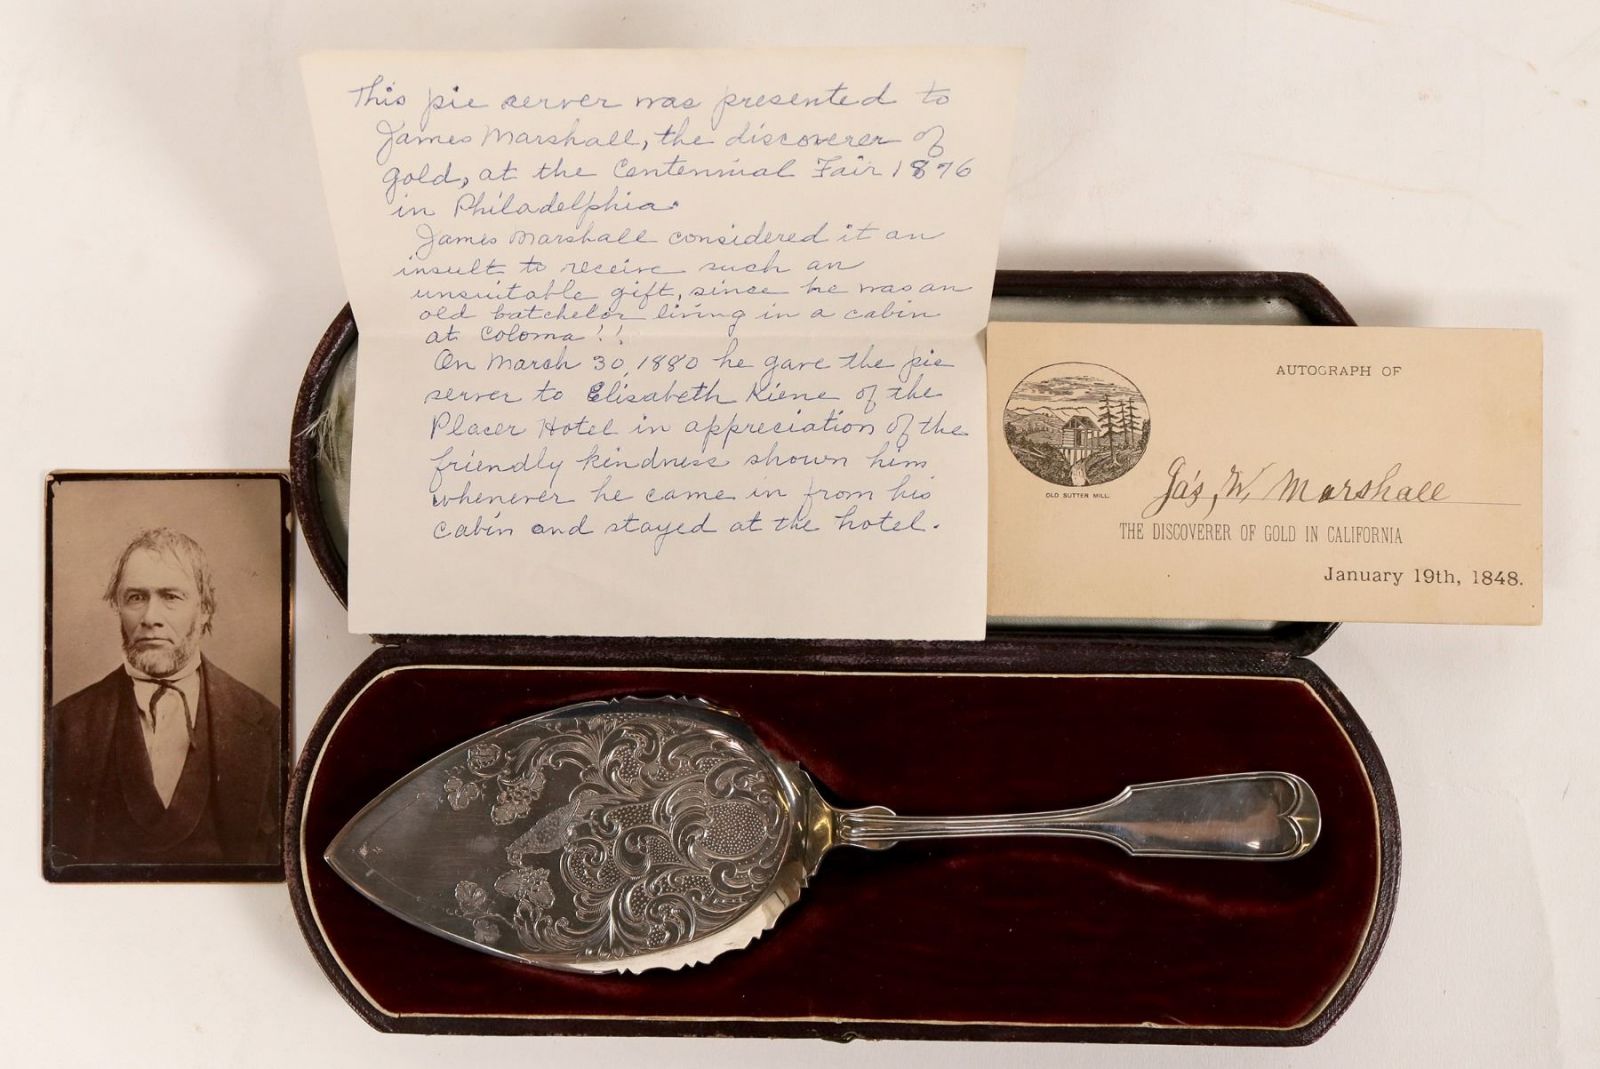 This pie server was presented to
James Marshall, the discoverer of
gold, at the Centennial Fair 1876
in Philadelphia.
James Marshall considered it an
insult to receive such an
unsuitable gift, since he was an
old batchelor living in a cabin
at Coloma!!
On March 30, 1880 he gave the pie
server to Elisabeth Kiene of the
Placer Hotel in appreciation of the
friendly kindness shown him
whenever he came in from his
cabin and stayed at the hotel.
AUTOGRAPH OF
OLD SUTTER MILL.
Ja's, W. Marshall
THE DISCOVERER OF GOLD IN CALIFORNIA
January 19th, 1848.